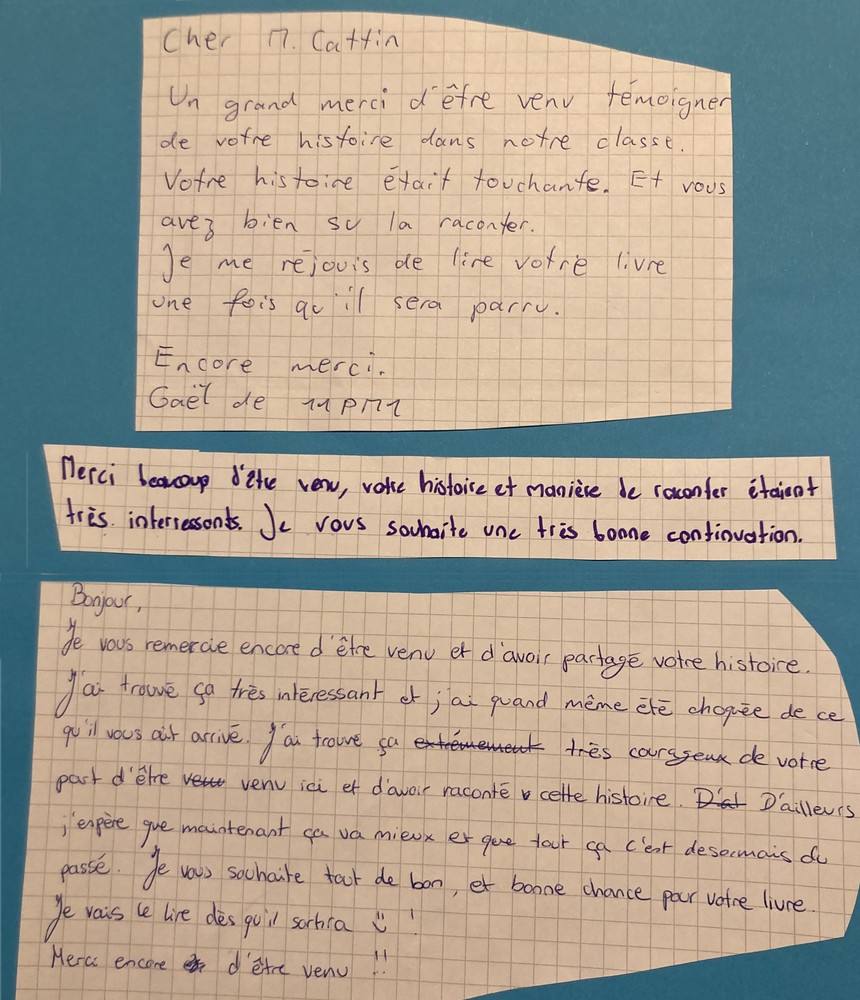 Cher M. Cattin
Un grand merci d'être venu témoigner
de votre histoire dans notre classe.
Votre histoire était touchante. Et vous
avez bien su la raconter.
Je me réjouis de lire votre livre
une fois qu'il sera parru.
Encore merci.
Gaël de 11PM1
Merci beaucoup d'être venu, votre histoire et manière de raconter étaient
très interressants. Je vous souhaite une très bonne continuation.
Bonjour,
Je vous remercie encore d'être venu et d'avoir partagé votre histoire.
J'ai trouvé ça très intéressant et j'ai quand même été choquée de ce
qu'il vous ait arrivé. J'ai trouvé ça extrémement très courageux de votre
part d'être venu venu ici et d'avoir raconté cette histoire. D'at D'ailleurs
j'espère que maintenant ça va mieux et que tout ça c'est desormais du
passé. Je vous souhaite tout de bon, et bonne chance pour votre livre.
Je vais le lire dès qu'il sortira !
Merci encore d'être venu !!